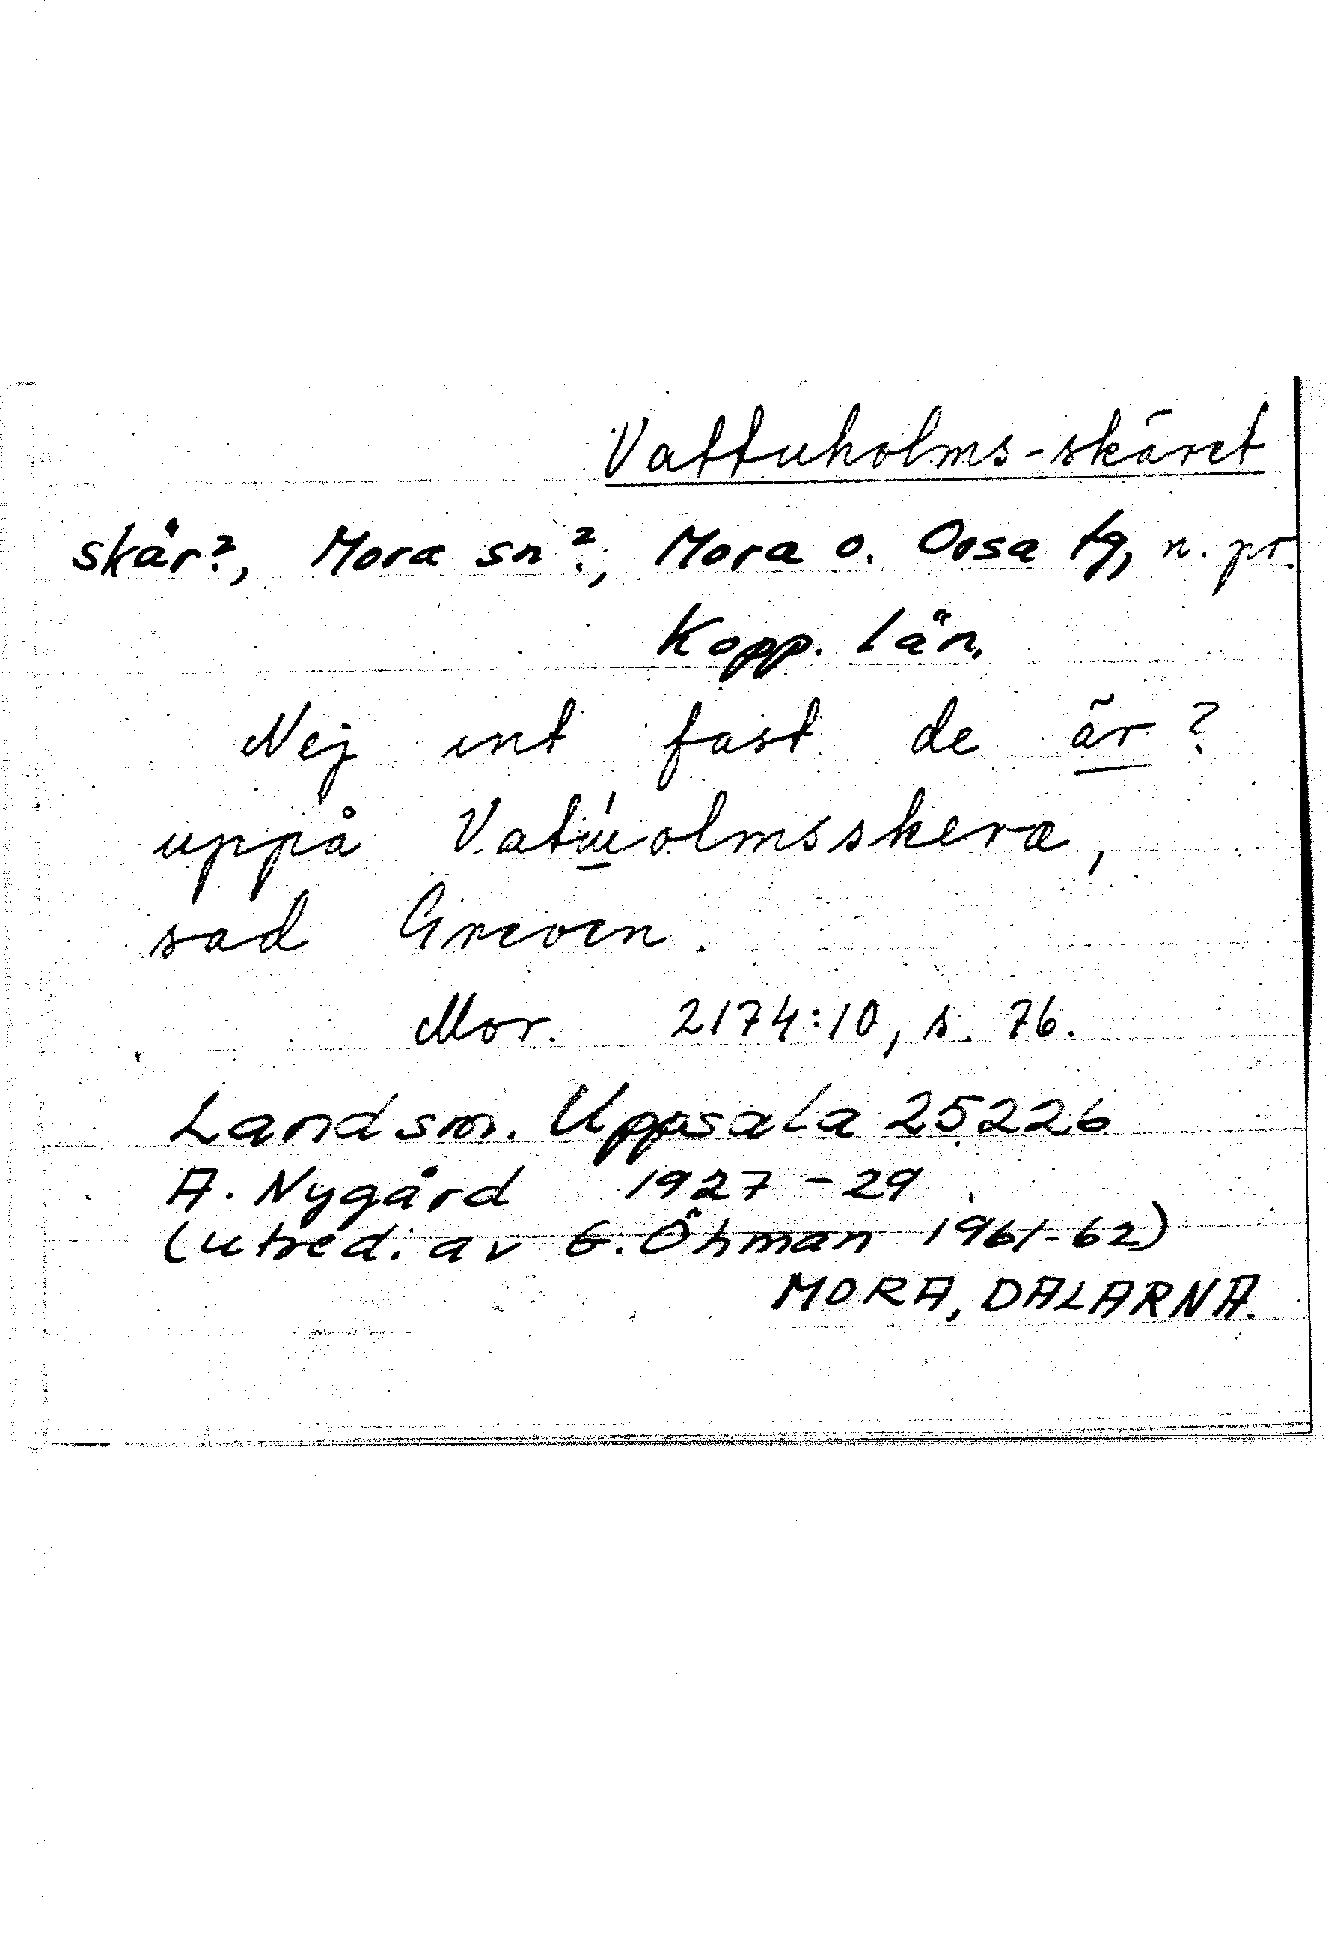 Vattuholms-skäret
skär?, Mora sn?, Mora o. Orsa tg, n. pr.
Kopp. län.
Nej int fast de är ?
uppå Vatuolmsskera,
sad Greven.
Mor. 2174:10, s. 76.
Landsm. Uppsala 25226
A. Nygård 1927-29
(utred. av G. Öhman 1961-62)
MORA, DALARNA.